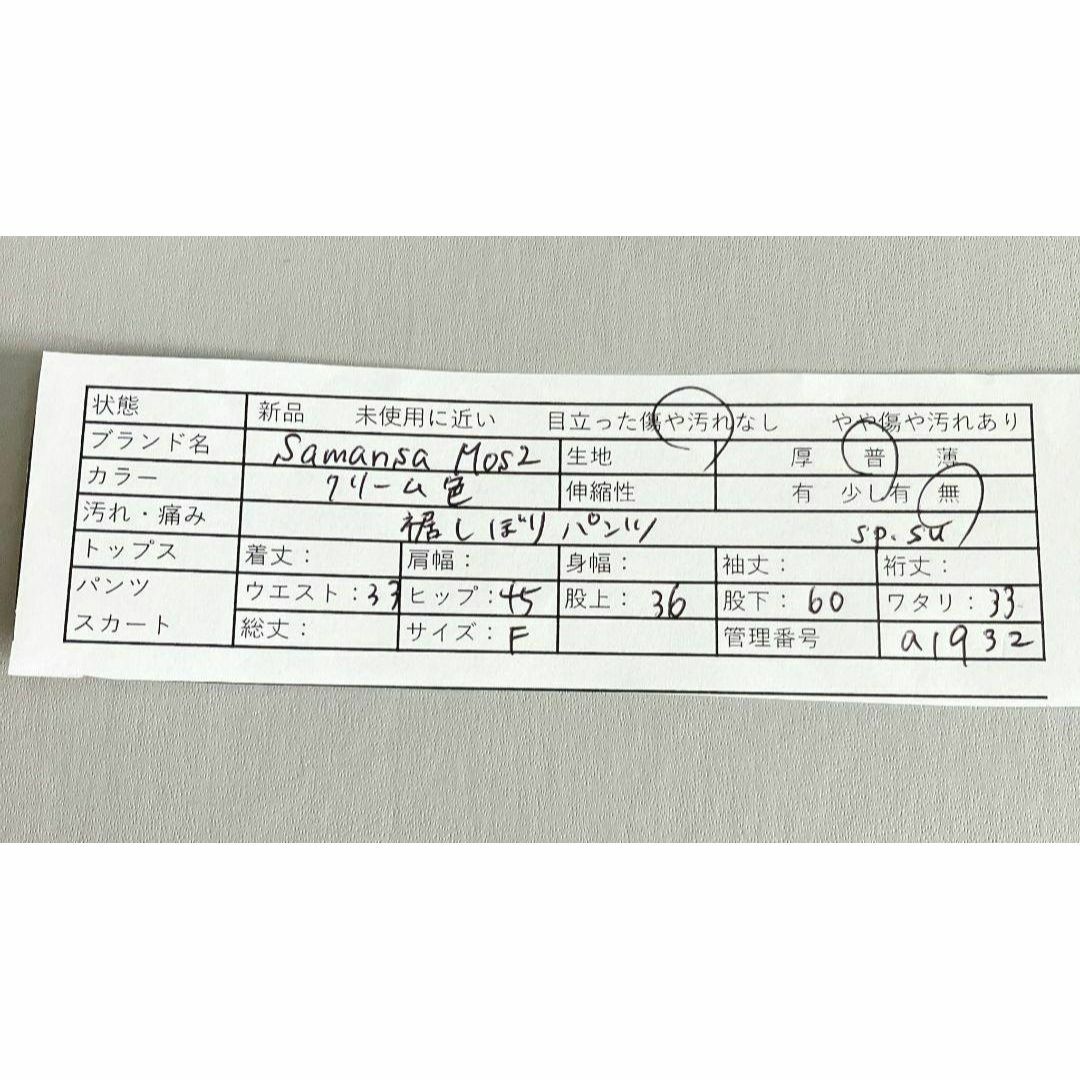 状態 新品 未使用に近い 目立った傷や汚れなし やや傷や汚れあり
ブランド名 Samansa Mos2 生地 厚 普 薄
カラー クリーム色 伸縮性 有 少し有 無
汚れ・痛み 裾しぼりパンツ sp.su
トップス 着丈： 肩幅： 身幅： 袖丈： 裄丈：
パンツ ウエスト：33 ヒップ：45 股上：36 股下：60 ワタリ：33
スカート 総丈： サイズ：F 管理番号 a1932